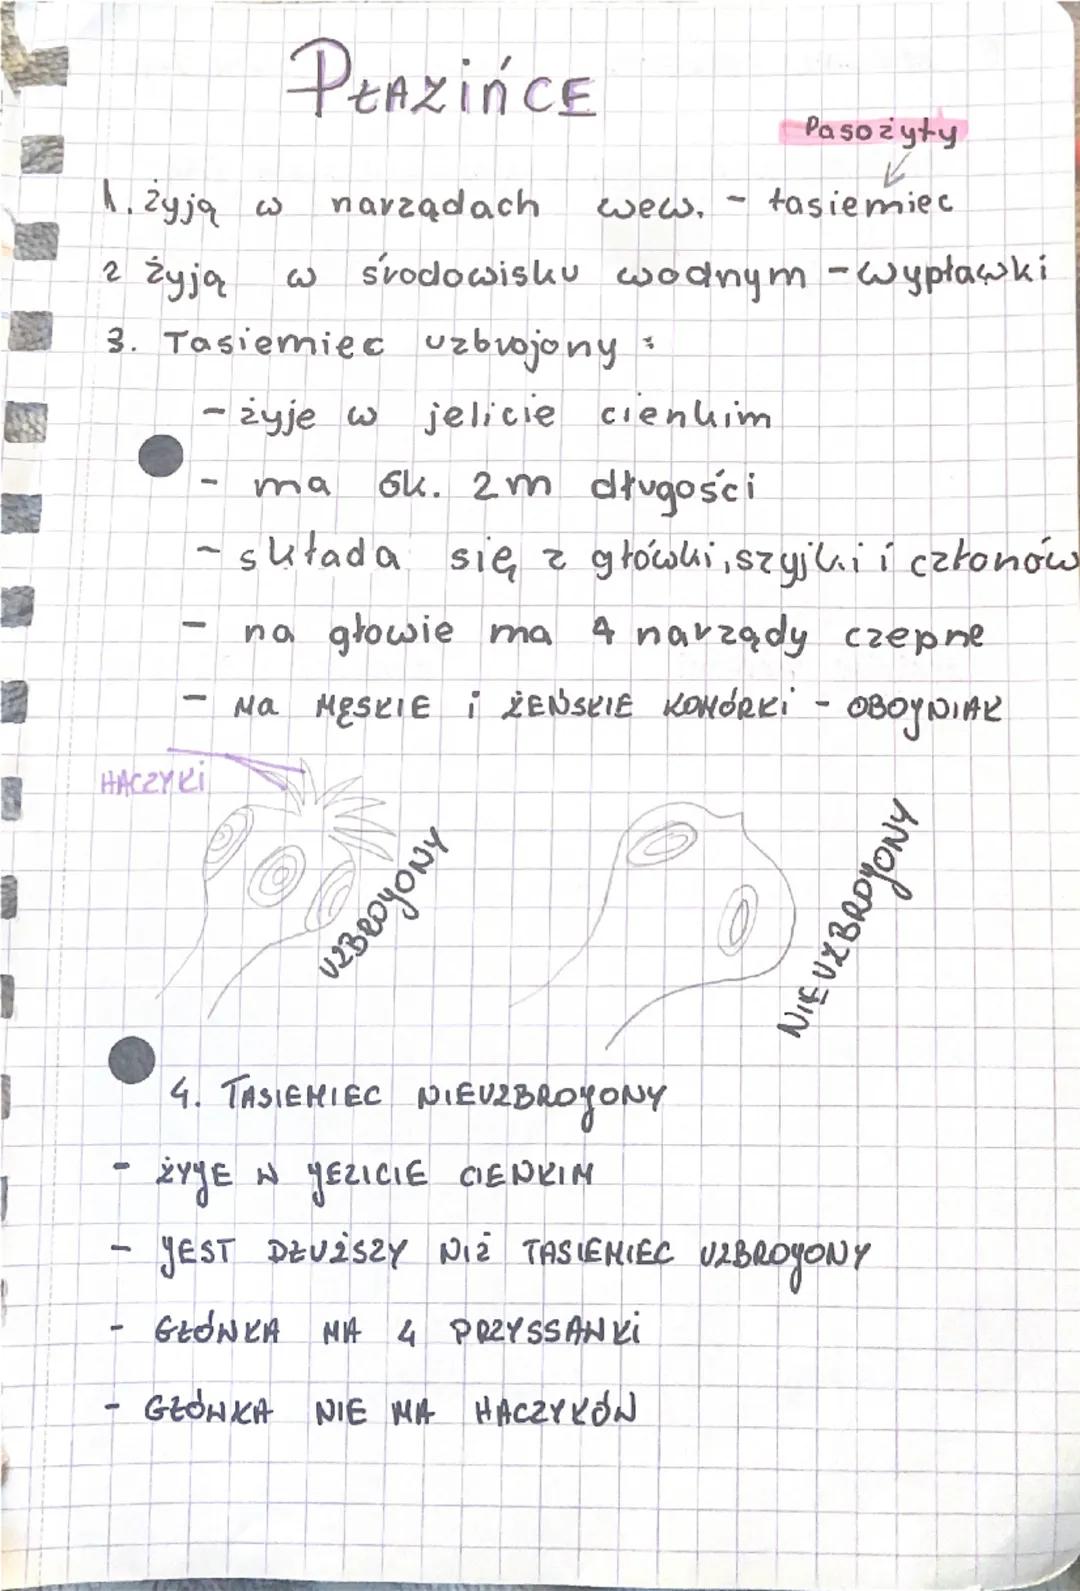 PŁAZIŃCE
Pasożyty
1. żyją w narządach wew. - tasiemiec
2 żyją w środowisku wodnym - wypławki
3. Tasiemiec uzbrojony :
- żyje w jelicie cienkim
- ma ok. 2m długości
- składa się z główki, szyjki i członów
- na głowie ma 4 narządy czepne
- MA MĘSKIE i ŻEŃSKIE KOMÓRKi - OBOJNIAK
HACZYKi
UZBROJONY
NIEUZBROJONY
4. TASIEMIEC NIEUZBROJONY
- ŻYJE W JELICIE CIENKIM
- JEST DŁUŻSZY NIŻ TASIEMIEC UZBROJONY
- GŁÓWKA MA 4 PRZYSSAWKi
- GŁÓWKA NIE MA HACZYKÓW